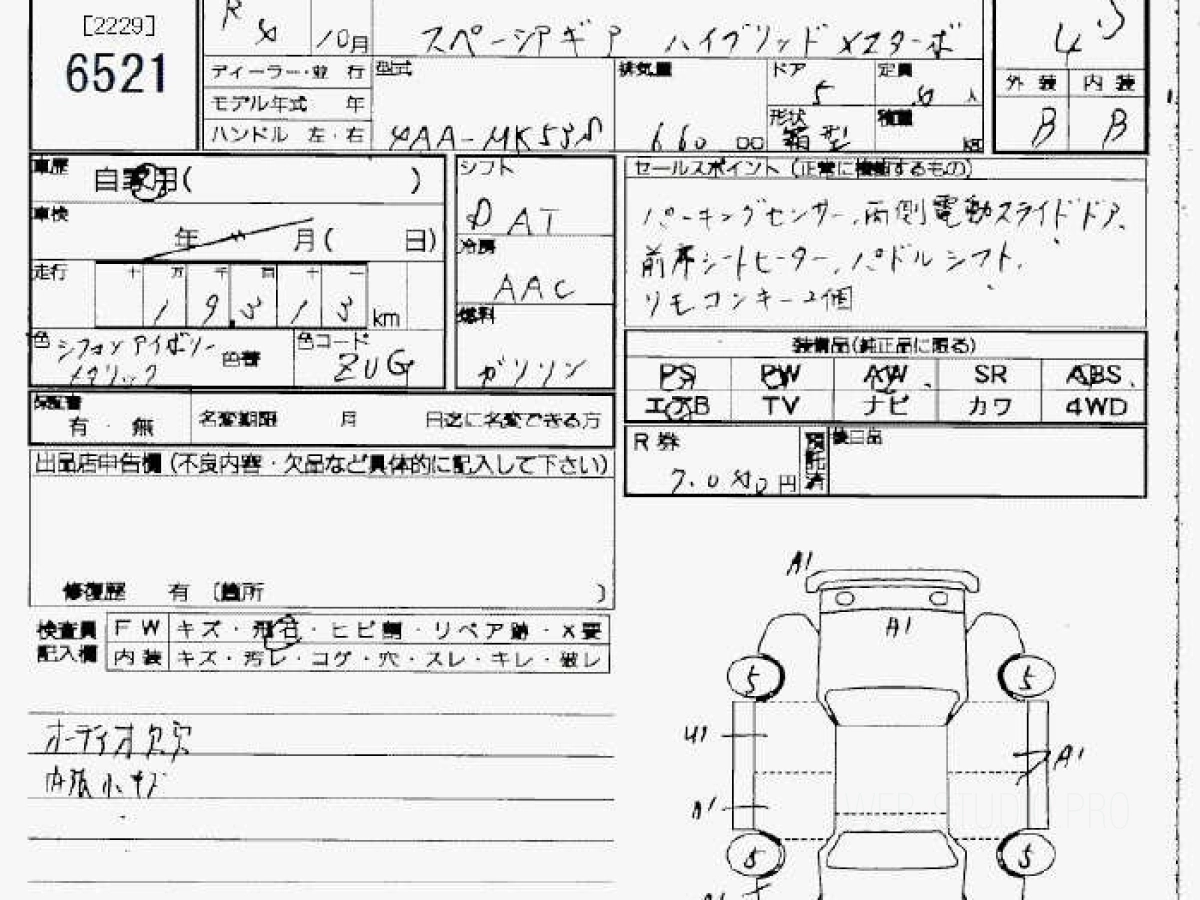 [2229]
6521
R 4 10月
スペーシアギア ハイブリッドXZターボ
ディーラー・並 行
モデル年式 年
ハンドル 左・右
型式
4AA-MK53S
排気量
660 cc
ドア 5
定員 人
形状 箱型
積量 kg
外装 内装
B B
車歴 自家用( )
車検 年 月( 日)
走行 十 万 千 百 十 一
1 9 3 1 3 km
色 シフォンアイボリー
メタリック
色替
色コード
ZUG
シフト
D AT
冷房
AAC
燃料
ガソリン
セールスポイント (正常に機能するもの)
パーキングセンサー、両側電動スライドドア、
前席シートヒーター、パドルシフト、
リモコンキー2個
装備品(純正品に限る)
PS PW AW SR ABS
エアB TV ナビ カワ 4WD
保証書 有・無
名変期限 月 日迄に名変できる方
R券 円
預託済
後日品
出品店申告欄(不良内容・欠品など具体的に記入して下さい)
修復歴 有 〔箇所 〕
検査員記入欄
FW キズ・飛石・ヒビ割・リペア跡・X要
内装 キズ・汚レ・コゲ・穴・スレ・キレ・破レ
オーディオ欠穴
内張小キズ
A1
A1
5 5
U1
A1
A1
5 5
WEB STUDIO PRO